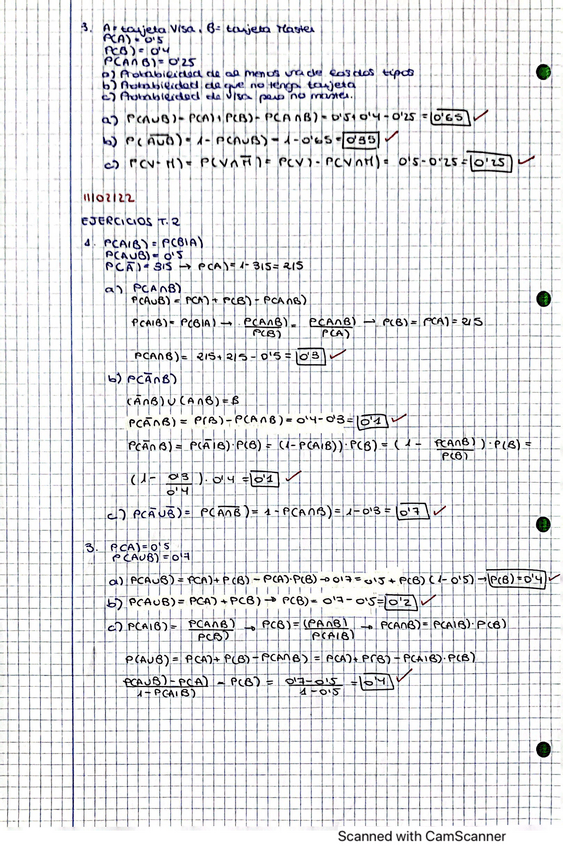 3. A= tarjeta Visa, B= tarjeta Master
P(A) = 0'5
P(B) = 0'4
P(A∩B) = 0'25
a) Probabilidad de al menos una de los dos tipos
b) Probabilidad de que no tenga tarjeta
c) Probabilidad de Visa pero no master.
a) P(A∪B) = P(A) + P(B) - P(A∩B) = 0'5 + 0'4 - 0'25 = 0'65 ✓
b) P(A̅∪̅B̅) = 1 - P(A∪B) = 1 - 0'65 = 0'35 ✓
c) P(V-M) = P(V∩M̅) = P(V) - P(V∩M) = 0'5 - 0'25 = 0'25 ✓
11/02/22
EJERCICIOS T.2
1. P(A|B) = P(B|A)
P(A∪B) = 0'5
P(A̅) = 3/5 → P(A) = 1 - 3/5 = 2/5
a) P(A∩B)
P(A∪B) = P(A) + P(B) - P(A∩B)
P(A|B) = P(B|A) → P(A∩B)/P(B) = P(A∩B)/P(A) → P(B) = P(A) = 2/5
P(A∩B) = 2/5 + 2/5 - 0'5 = 0'3 ✓
b) P(A̅∩B)
(A̅∩B) ∪ (A∩B) = B
P(A̅∩B) = P(B) - P(A∩B) = 0'4 - 0'3 = 0'1 ✓
P(A̅∩B) = P(A̅|B)·P(B) = (1 - P(A|B))·P(B) = (1 - P(A∩B)/P(B))·P(B) =
(1 - 0'3/0'4)·0'4 = 0'1 ✓
c) P(A̅∪B̅) = P(A̅∩̅B̅) = 1 - P(A∩B) = 1 - 0'3 = 0'7 ✓
3. P(A) = 0'5
P(A∪B) = 0'7
a) P(A∪B) = P(A) + P(B) - P(A)·P(B) → 0'7 = 0'5 + P(B)(1 - 0'5) → P(B) = 0'4 ✓
b) P(A∪B) = P(A) + P(B) → P(B) = 0'7 - 0'5 = 0'2 ✓
c) P(A|B) = P(A∩B)/P(B) → P(B) = (P(A∩B)/P(A|B) → P(A∩B) = P(A|B)·P(B)
P(A∪B) = P(A) + P(B) - P(A∩B) = P(A) + P(B) - P(A|B)·P(B)
P(A∪B) - P(A)/1 - P(A|B) - P(B) = 0'7 - 0'5/1 - 0'5 = 0'4 ✓
Scanned with CamScanner